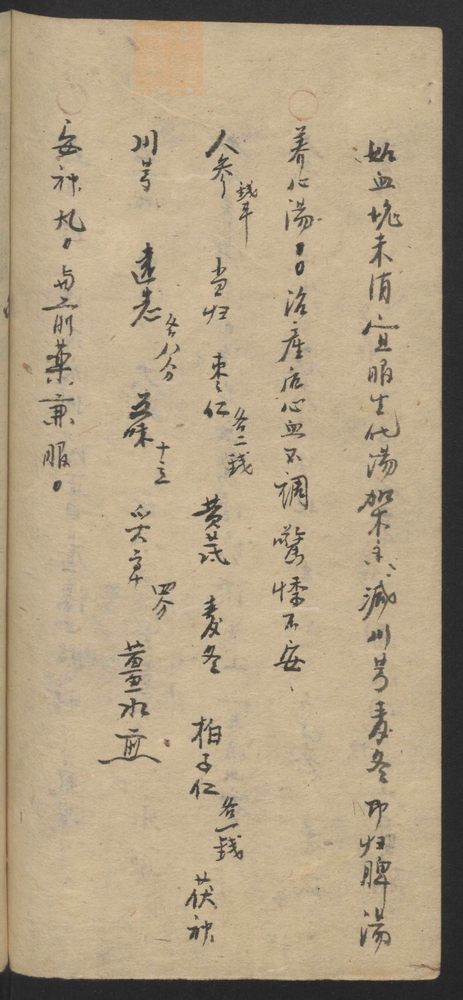 如血塊未消宜服生化湯加木香減川芎麦冬即归脾湯
养心湯治產后心血不調驚悸不安
人參錢半 当归 枣仁各二錢 黄芪 麦冬 柏子仁各一錢 茯神
川芎 遠志各八分 五味十三 炙草四分 薑水煎
安神丸 与前藥兼服